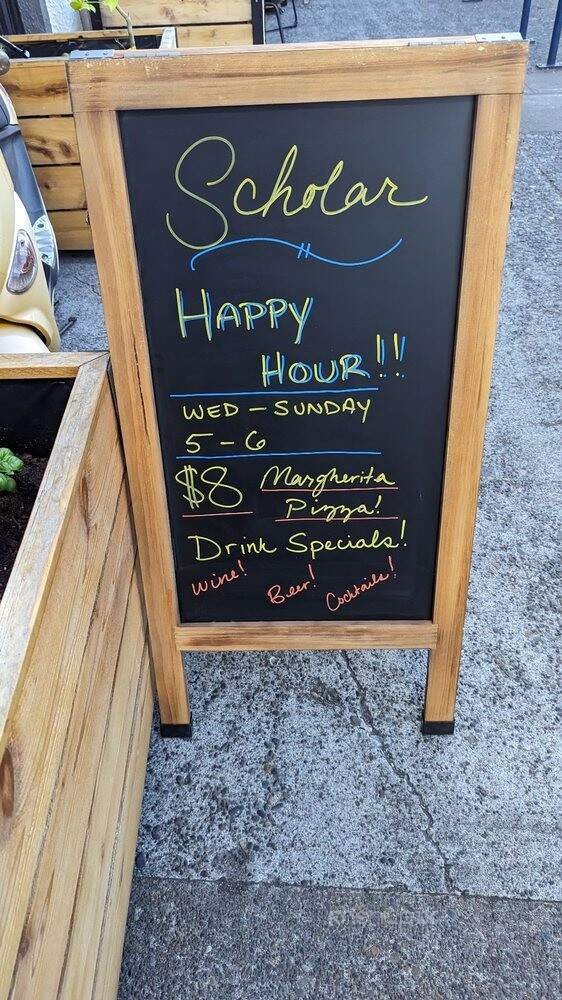 Scholar
HAPPY
HOUR!!
WED - SUNDAY
5 - 6
$8 Margherita
Pizza!
Drink Specials!
Wine! Beer! Cocktails!